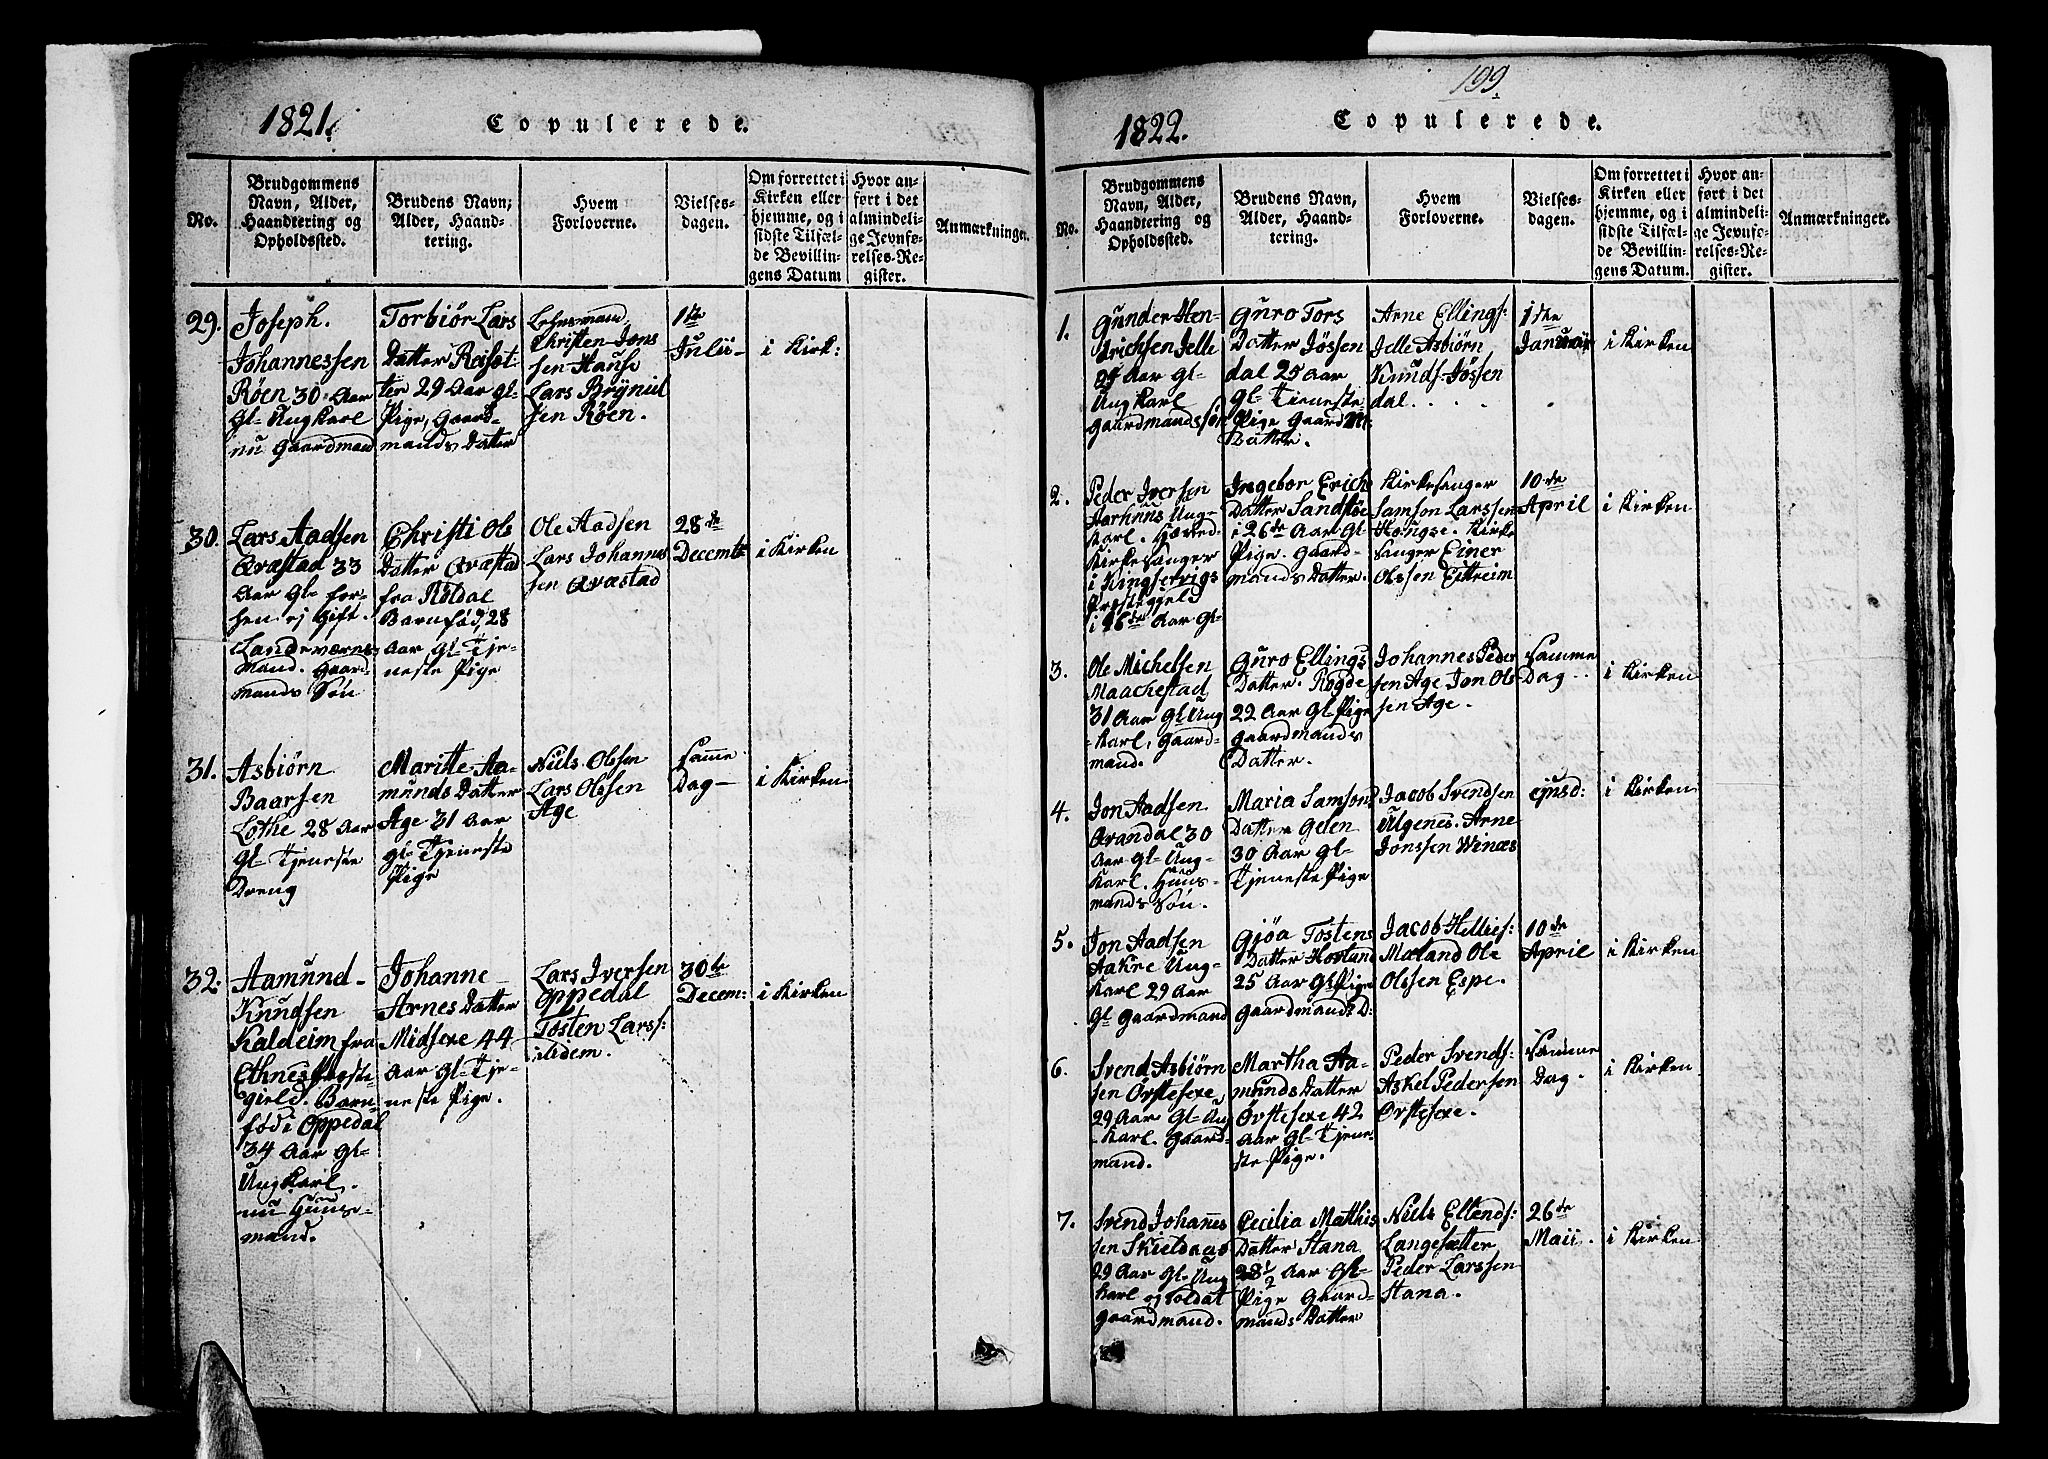 1821.
Copulerede.
No.
Brudgommens
Navn, Alder,
Haandtering og
Opholdssted.
Brudens Navn,
Alder, Haand-
tering.
Hvem
Forloverne.
Vielses-
dagen.
Om forrettet i
Kirken eller
hjemme, og i
sidste Tilfæl-
de Bevillin-
gens Datum
Hvor an-
ført i det
almindeli-
ge Jevnfø-
relses-Re-
gister.
Anmærkninger.
29.
Joseph.
Johannessen
Röen 30. Aar
Gl- Ungkarl
nu Gaardmand
Torbiör Lars
Datter Reiset-
ter 29 Aar gl-
Pige, Gaard-
mands Datter
Lehnsmand
Christen Jons
sen Hause
Lars Brÿniul
sen Röen.
1te
Julii-
i Kirk:
30.
Lars Aadsen
Qvæstad 33
Aar Gl- for-
hen ej Gift.
Landeværns-
mand. Gaard-
mands Sön
Christi Ols
Datter Qvæstad
fra Röldal
Barnfød, 28
Aar gl- Tje-
neste Pige
Ole Aadsen
Lars Johannes
sen Qvæstad
28de
Decembr
i Kirken
31.
Asbiörn
Baarsen
Lothe 28 Aar
Gl- Tjeneste
Dreng
Maritte Aa-
munds Datter
Age 31 Aar
gl- Tjeneste
Pige
Niels Olssen
Lars Olssen
Age
samme
Dag-
i Kirken
32.
Aamund-
Knudsen
Kaldeim fra
Ethnes Præste
gield. Barn
fød i Oppedal
34 Aar Gl-
Ungkarl.
nu Huus-
mand.
Johanne-
Arnes Datter
Midsexe 44
Aar Gl- Tje-
neste Pige.
Lars Iversen
Oppedal
Tosten Larss:
ibidem.
30te
Decem:
i Kirken
199
1822.
Copulerede.
No.
Brudgommens
Navn, Alder,
Haandtering og
Opholdssted.
Brudens Navn,
Alder, Haand-
tering.
Hvem
Forloverne.
Vielses-
dagen.
Om forrettet i
Kirken eller
hjemme, og i
sidste Tilfæl-
de Bevillin-
gens Datum.
Hvor an-
ført i det
almindeli-
ge Jevnfø-
relses-Re-
gister.
Anmærkninger.
1.
Gunder Hen-
drichsen Jelle
Aar gl-
Ungkarl
Gaardmandssön
Guro Tors
Datter Jössen
dal 25 Aar
gl- Tieneste
Pige Gaard M:
Datter.
Arne Ellings:
Jelle Asbiörn
Knuds: Jössen
dal.
1ste
Januar
i Kirken
2.
Peder Iversen
Aarhuus Ung-
karl.
Kirkesanger
i Kingservigs
Præstegjeld
i 26de Aar Gl-
Ingebor Erich
Datter Sandstöe
i 26de Aar Gl
Pige. Gaard-
mands Datter.
Kirkesanger
Samson Larssen
Hougse. Kirke
sanger Einer
Olssen Eitreim
10de
April
i Kirken
3.
Ole Michelsen
Maachestad
31 Aar Gl Ung
karl, Gaard-
mand.
Guro Ellings
Datter. Rogde
22 Aar Gl- Pige
Gaardmands
Datter.
Johannes Peder
sen Age Jon Ols
sen Age.
samme
Dag..
i Kirken
4.
Jon Aadsen
Qvandal 30
Aar Gl- Ung-
karl. Huus-
mands Sön.
Maria Samson
Datter Geten
30 Aar Gl-
Tjeneste Pige
Jacob Svendsen
Ulgenes. Arne
Jonssen Winæs
ejusd:
i Kirken
5.
Jon Aadsen
Aakre Ung-
karl 29 Aar
Gl Gaardmand
Gjöa Tostens
Datter Hovland
25 Aar Gl Pige
Gaardmands D:
Jacob Hellies:
Maland Ole
Olssen Espe.
10de
April
i Kirken
6.
Svend Asbiörn
sen Örstesexe
29 Aar Gl- Ung
karl. Gaard-
mand.
Martha Aa-
munds Datter
Örstesexe 42
Aar Gl- Tjene-
ste Pige.
Peder Svends:
Askel Pedersen
Örstesexe.
Samme
Dag.
i Kirken
7.
Svend Johannes
sen Skieldaas
29 Aar Gl- Ung
karl og Soldat
Gaardmand.
Cecilia Matthis
Datter Stana
28 1/2 Aar Gl-
Pige Gaard-
mands Datter
Niels Ellends:
Langesætter
Peder Larssen
Stana.
26de
Maii.
i Kirken